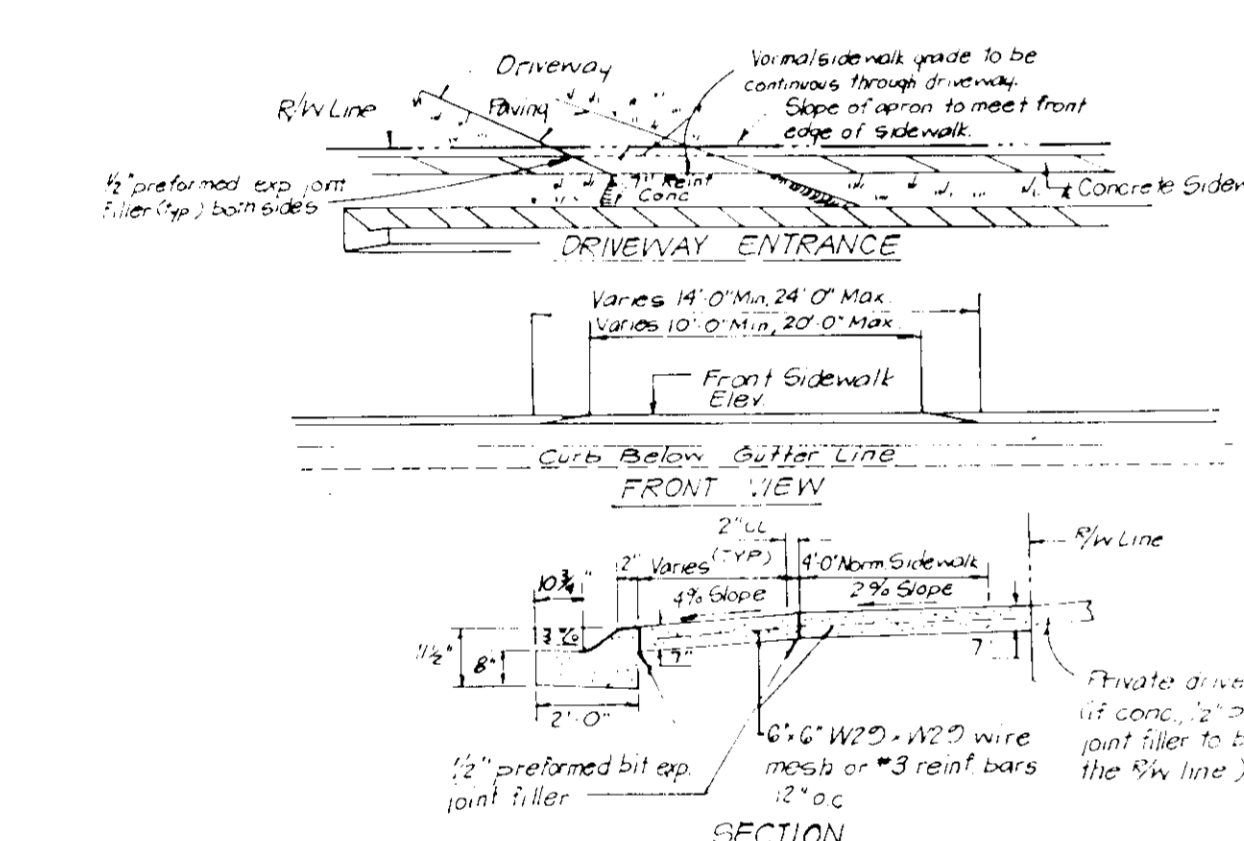 Driveway
Paving
R/W Line
Normal sidewalk grade to be
continuous through driveway.
Slope of apron to meet front
edge of sidewalk.
1/2" preformed exp joint
filler (typ) both sides
7" Reint
Conc
Concrete Sidew
DRIVEWAY ENTRANCE
Varies 14'-0" Min, 24'0" Max.
Varies 10'-0" Min, 20'-0" Max.
Front Sidewalk
Elev.
Curb Below Gutter Line
FRONT VIEW
2"
R/W Line
2" Varies (TYP)
4'-0" Norm. Sidewalk
10 3/4"
4% Slope
2% Slope
8"
7"
7"
2'-0"
Private drive
(if conc., 1/2"
joint filler to b
the R/W line)
6"x6" W29 x W29 wire
mesh or #3 reinf. bars
12" o.c
1/2" preformed bit exp.
joint filler
SECTION